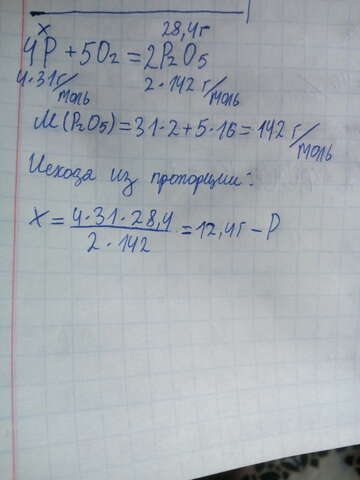 x 28,4г
4P + 5O₂ = 2P₂O₅
4·31г/моль 2·142г/моль
M(P₂O₅) = 31·2 + 5·16 = 142 г/моль
Исходя из пропорции:
X = 4·31·28,4 / 2·142 = 12,4г – P